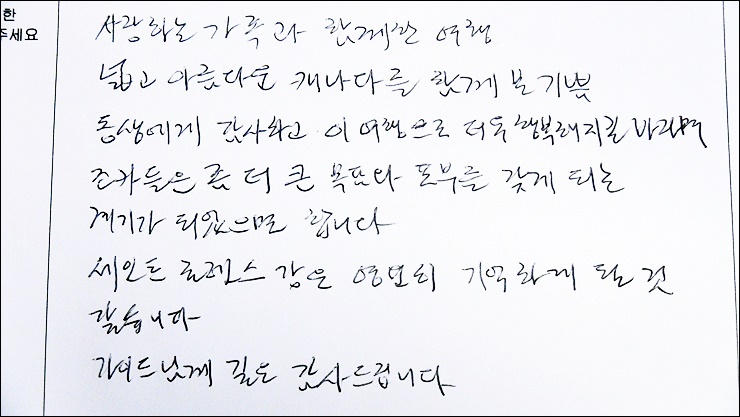 한
주세요
사랑하는 가족과 함께한 여행
넓고 아름다운 캐나다를 함께 본 기쁨
동생에게 감사하고 이 여행으로 더욱 행복해지길 바라며
조카들은 좀 더 큰 목표와 포부를 갖게 되는
계기가 되었으면 합니다
세인트 로렌스 강은 영원히 기억하게 될 것
같습니다
가이드님께 깊은 감사드립니다